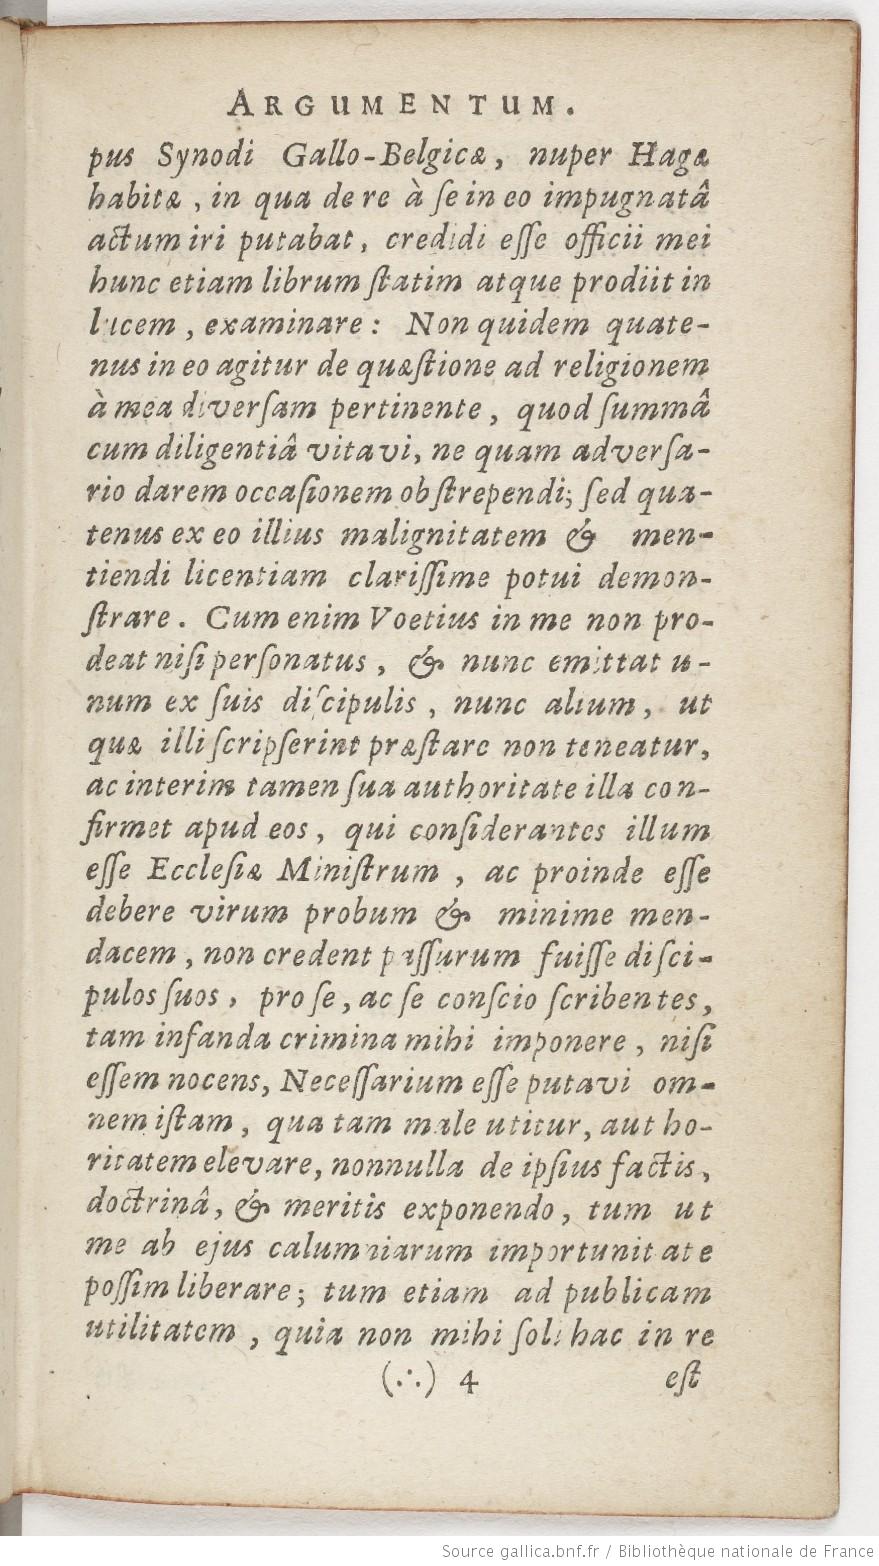 ARGUMENTUM.
pus Synodi Gallo-Belgicæ, nuper Hagæ
habitæ, in qua de re à ſe in eo impugnatâ
actum iri putabat, credidi eſſe officii mei
hunc etiam librum ſtatim atque prodiit in
lucem, examinare: Non quidem quate-
nus in eo agitur de quæſtione ad religionem
à mea diverſam pertinente, quod ſummâ
cum diligentiâ vitavi, ne quam adverſa-
rio darem occaſionem obſtrependi; ſed qua-
tenus ex eo illius malignitatem & men-
tiendi licentiam clariſſime potui demon-
ſtrare. Cum enim Voetius in me non pro-
deat niſi perſonatus, & nunc emittat u-
num ex ſuis diſcipulis, nunc alium, ut
quæ illi ſcripſerint præſtare non teneatur,
ac interim tamen ſua authoritate illa con-
firmet apud eos, qui conſiderantes illum
eſſe Eccleſiæ Miniſtrum, ac proinde eſſe
debere virum probum & minime men-
dacem, non credent paſſurum fuiſſe diſci-
pulos ſuos, pro ſe, ac ſe conſcio ſcribentes,
tam infanda crimina mihi imponere, niſi
eſſem nocens, Neceſſarium eſſe putavi om-
nem iſtam, qua tam male utitur, autho-
ritatem elevare, nonnulla de ipſius factis,
doctrinâ, & meritis exponendo, tum ut
me ab ejus calumniarum importunitate
poſſim liberare; tum etiam ad publicam
utilitatem, quia non mihi ſoli hac in re
(∴) 4 eſt
Source gallica.bnf.fr / Bibliothèque nationale de France